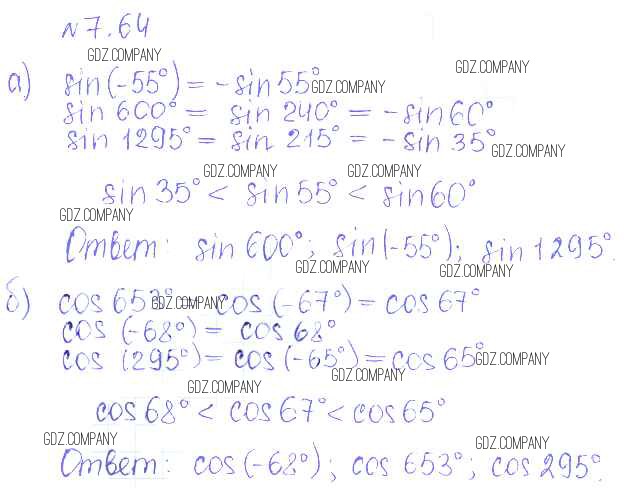 №7.64
GDZ.COMPANY
GDZ.COMPANY
а) sin(-55°) = -sin55°
GDZ.COMPANY
sin 600° = sin 240° = -sin60°
sin 1295° = sin 215° = -sin 35°
GDZ.COMPANY
GDZ.COMPANY GDZ.COMPANY
sin35° < sin55° < sin60°
GDZ.COMPANY
Ответ: sin600°; sin(-55°); sin1295°.
GDZ.COMPANY GDZ.COMPANY
б) cos 653° = cos(-67°) = cos67°
GDZ.COMPANY
cos (-68°) = cos68°
cos (295°) = cos(-65°) = cos65°
GDZ.COMPANY
GDZ.COMPANY
GDZ.COMPANY
cos68° < cos67° < cos65°
GDZ.COMPANY GDZ.COMPANY
Ответ: cos(-68°); cos 653°; cos295°.